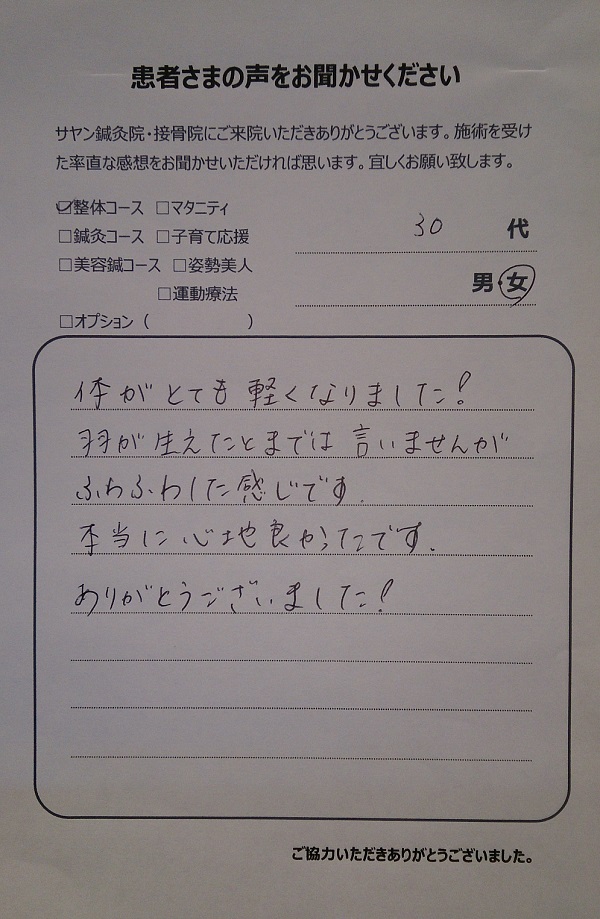 患者さまの声をお聞かせください
サヤン鍼灸院・接骨院にご来院いただきありがとうございます。施術を受け
た率直な感想をお聞かせいただければ思います。宜しくお願い致します。
☑整体コース □マタニティ
□鍼灸コース □子育て応援
□美容鍼コース □姿勢美人
□運動療法
□オプション（ ）
30 代
男・女
体がとても軽くなりました！
羽が生えたとまでは言いませんが
ふわふわした感じです.
本当に心地良かったです.
ありがとうございました！
ご協力いただきありがとうございました。